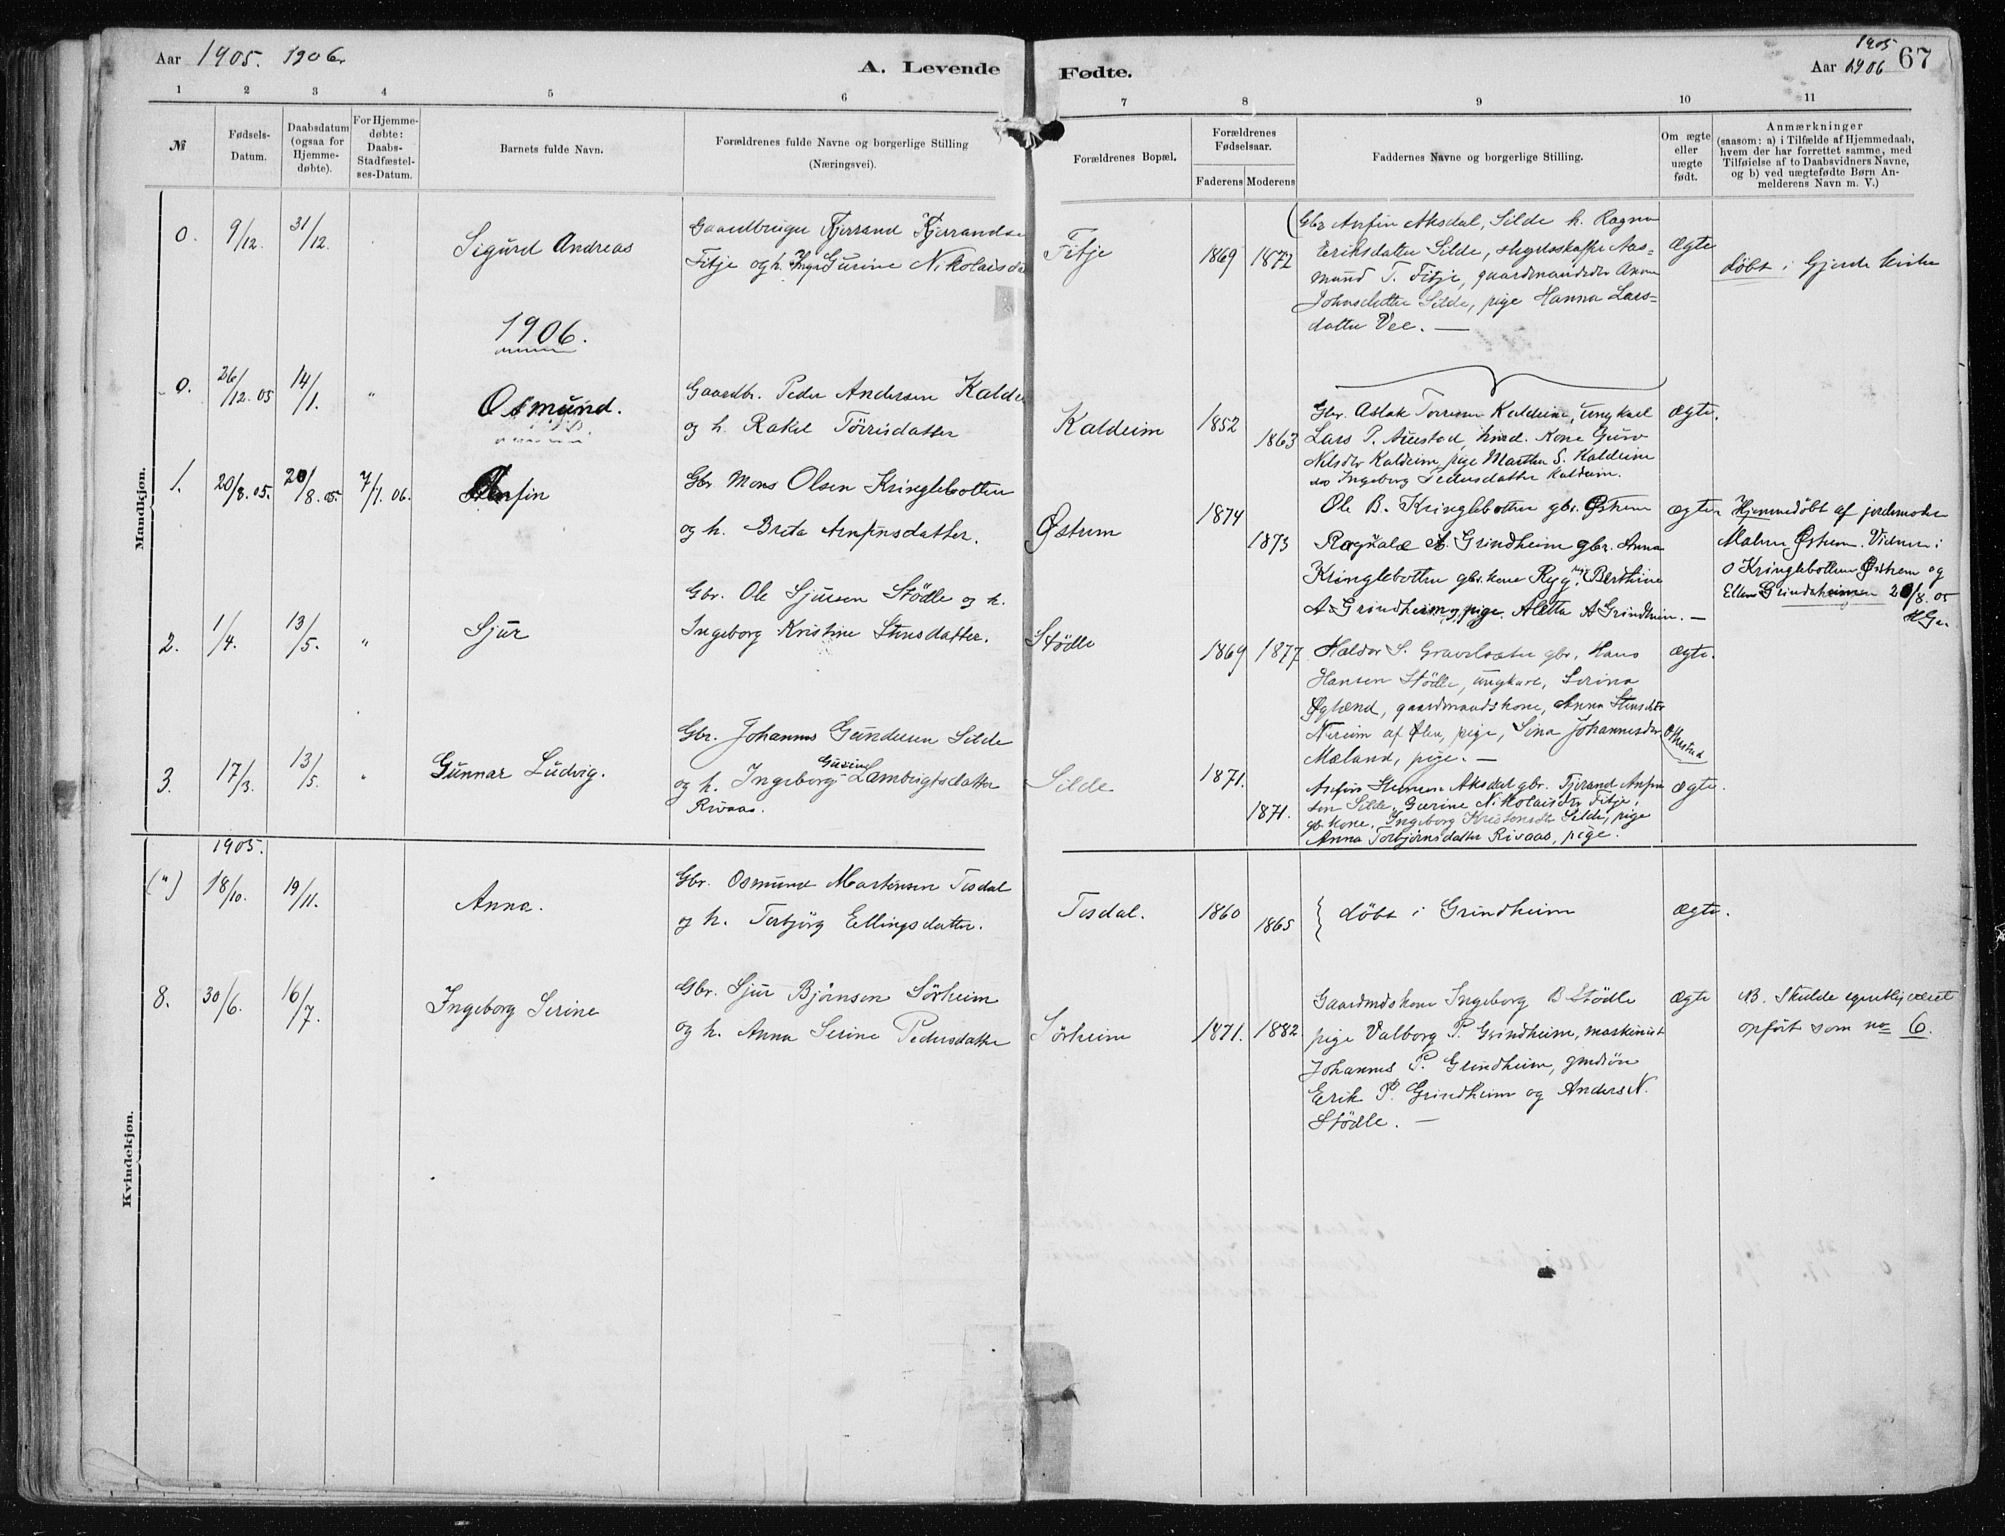 Aar 1905. 1906.
A. Levende
Fødte.
1905
Aar 1906
67
1 2 3 4 5 6 7 8 9 10 11
№
Fødsels-
Datum.
Daabsdatum
(ogsaa for
Hjemme-
døbte).
For Hjemme-
døbte:
Daabs-
Stadfæstel-
ses-Datum.
Barnets fulde Navn.
Forældrenes fulde Navne og borgerlige Stilling
(Næringsvei).
Forældrenes Bopæl.
Forældrenes
Fødselsaar.
Faderens Moderens
Faddernes Navne og borgerlige Stilling.
Om ægte
eller
uægte
født.
Anmærkninger
(saasom: a) i Tilfælde af Hjemmedaab,
hvem der har forrettet samme, med
Tilføielse af to Daabsvidners Navne,
og b) ved uægtefødte Børn An-
melderens Navn m. V.)
Mandkjøn.
0. 9/12. 31/12.
Sigurd Andreas
Gaardbruger Tjerrand Tjerrandse
Fitje og h. Inger Gurine Nikolaisd
Fitje
1869 1872
Gbr Anfin Aksdal, Silde h. Ragna
Eriksdatter Silde, Aas-
mund T. Fitje, Anna
Johnsdatter Silde, pige Hanna Lars-
datter Vee. —
Ægte
døbt i Gjerde kirke
1906.
0. 26/12. 05 14/1. "
Osmund.
Gaardbr. Peder Andersen Kaldei
og h. Rakel Tørrisdatter
Kaldeim
1852
1863
Gbr. Aslak Torresen Kaldeim, ungkarl
Lars P. Austad, kone Guro
Nilsdtr Kaldeim, pige Martha S. Kaldeim
do Ingeborg Pedersdatter Kaldeim.
Ægte.
1. 20/8. 05. 20/8. 05. 7/1. 06.
Anfin
Gbr Mons Olsen Kringlebotten
og h. Brita Arnfinsdatter.
Østum
1874
1873
Ole B. Kringlebotten gbr. Østem
Ragnale A. Grindheim gbr. Anna
Kringlebotten gbr. kone Ryg, Berthine
A Grindheim, pige. Aletta A Grindheim. —
Ægte
Hjemmedøbt af jordemoder
Malene Østem. Vidner:
O Kringlebotten Østem og
Ellen Grindheim 20/8. 05
H Ga.
2. 1/4. 13/5. "
Sjur
Gbr. Ole Sjursen Stødle og h.
Ingeborg Kristine Stensdatter.
Stødle
1869 1877
Haldor S. Gravelsæter gbr. Hans
Hansen Stødle, ungkarl, Serina
Øglænd, gaardmandskone, Anna Stensdtr
Nerheim af Ølen, pige, Sina Johannesdtr
Mæland, pige. —
Ægte.
3. 17/3. 13/5. "
Gunnar Ludvig.
Gbr. Johannes Gundersen Silde
og h. Ingeborg Gurine Lambrigtsdatter
Rivaas.
Silde
1871.
1871.
Anfin Aksdal gbr. Tjerand Anfin
sen Silde, Gurine Nikolaisdtr Fitje,
gb. kone, Ingeborg Kristensdt Silde, pige
Anna Torbjørnsdatter Rivaas, pige.
Ægte.
Kvindekjøn.
1905.
(") 18/10. 19/11.
Anna.
Gbr. Osmund Martinsen Tesdal
og h. Torbjørg Ellingsdatter.
Tesdal.
1860
1865
døbt i Grindheim
Ægte.
8. 30/6. 16/7.
Ingeborg Serine
Gbr. Sjur Bjørnsen Sørheim
og h. Anna Serine Pedersdatter
Sørheim
1871. 1882
Gaardmdskone Ingeborg B Stødle
pige Valborg P. Grindheim, maskinist
Johannes P. Grindheim, gmdsøn
Erik P. Grindheim og Anders N.
Stødle. —
Ægte
NB. Skulde egentlig været
opført som no 6.